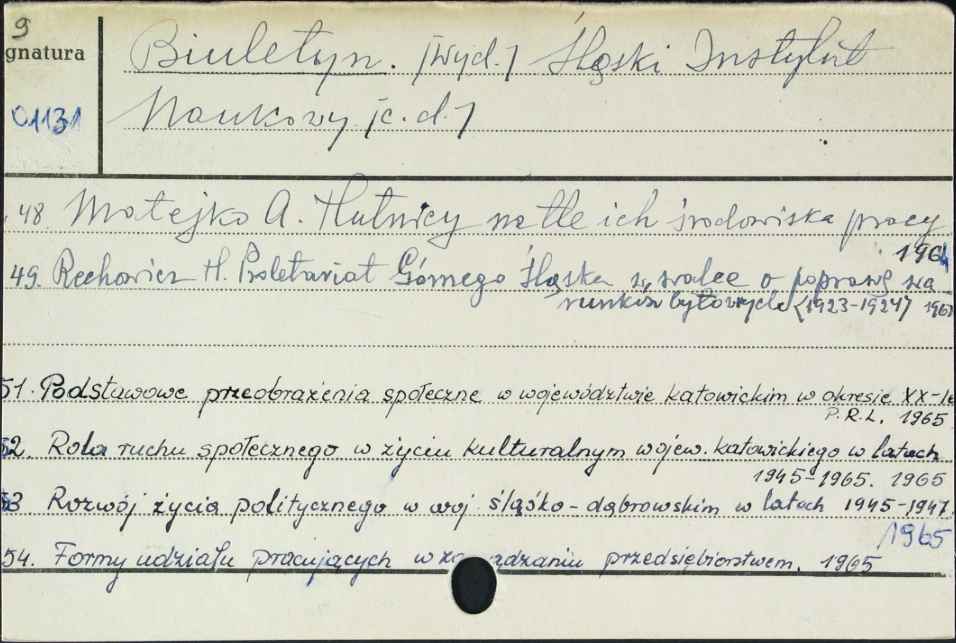 9
gnatura
Biuletyn. [Wyd.] Śląski Instytut
C1131
Naukowy [c.d.]
48. Matejko A. Hutnicy na tle ich środowiska pracy
1964
49. Rechowicz H. Proletariat Górnego Śląska w walce o poprawę wa
runków bytowych (1923-1924) 196
51. Podstawowe przeobrażenia społeczne w województwie katowickim w okresie XX-le
P.R.L. 1965
52. Rola ruchu społecznego w życiu kulturalnym wojew. katowickiego w latach
1945-1965. 1965
53 Rozwój życia politycznego w woj. śląsko-dąbrowskim w latach 1945-1947.
1965
54. Formy udziału pracujących w za dzaniu przedsiębiorstwem. 1965